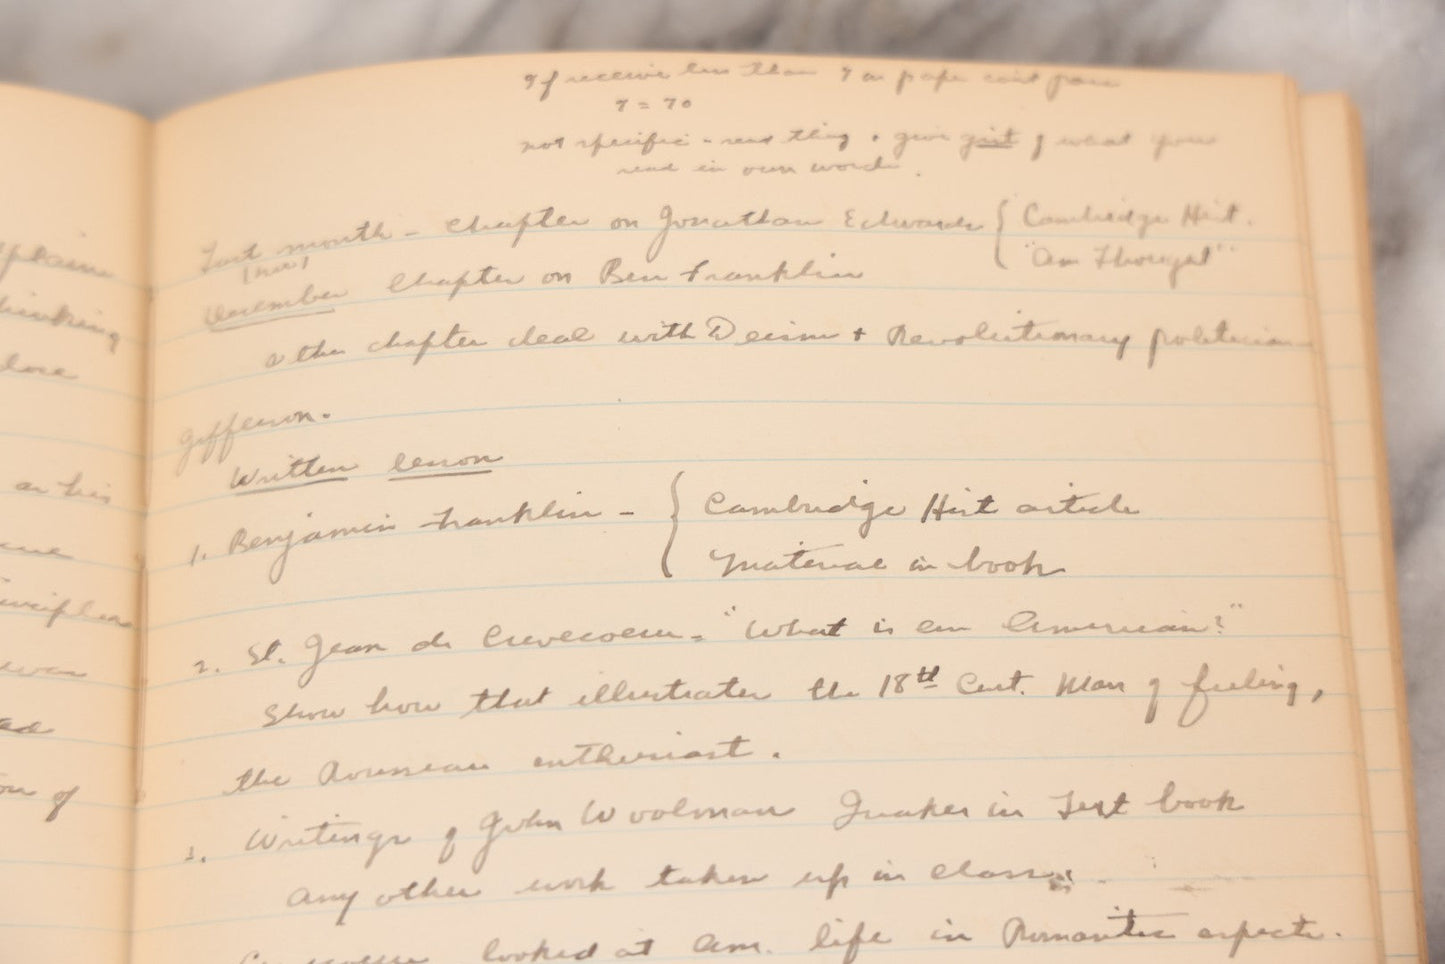 plain
thinking
close
as his
principles
was
on of
If receive less than 7 on paper can't pass
7 = 70
not specific - read thing + give gist of what you
read in own words.
Last month - Chapter on Jonathan Edwards { Cambridge Hist.
"Am Thought"
(Nov)
December Chapter on Ben Franklin
other chapter deal with Deism + Revolutionary politician
Jefferson.
Written lesson
1. Benjamin Franklin - { Cambridge Hist article
Material in book
2. St. Jean de Crevecoeur - "What is an American?"
Show how that illustrates the 18th Cent. Man of feeling,
the Rousseau enthusiast.
3. Writings of John Woolman Quaker in Text book
Any other work taken up in class.
Crevecoeur looked at Am. life in Romantic aspects.